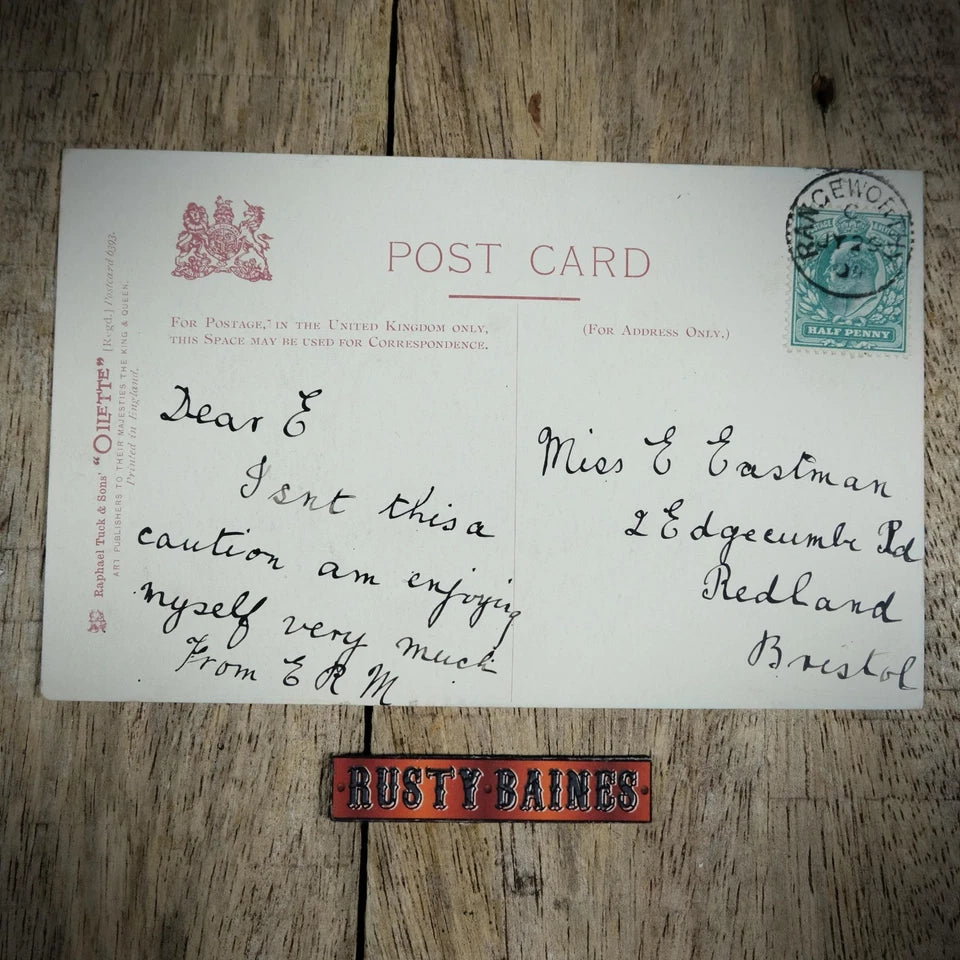 POST CARD
FOR POSTAGE, IN THE UNITED KINGDOM ONLY,
THIS SPACE MAY BE USED FOR CORRESPONDENCE.
(FOR ADDRESS ONLY.)
Raphael Tuck & Sons' "OILETTE" [Regd.] Postcard
ART PUBLISHERS TO THEIR MAJESTIES THE KING & QUEEN.
Printed in England.
RANGEWORTHY
C
JY 25
04
HALF PENNY
Dear E
Isnt this a
caution am enjoying
myself very much
From E R M
Miss E Eastman
2 Edgecumbe Rd
Redland
Bristol
RUSTY·BAINES